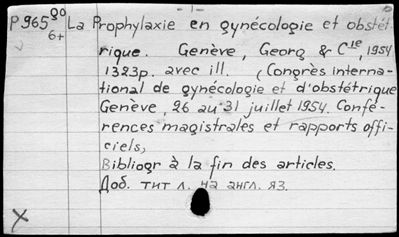 - 1 -
P 965 90 La Prophylaxie en gynécologie et obstét-
6+
rique. Genève, Georg & Cie, 1954
1323p. avec ill. (Congrès interna-
tional de gynécologie et d'obstétrique
Genève, 26 au 31 juillet 1954. Confé-
rences magistrales et rapports offi-
ciels,
Bibliogr à la fin des articles.
Доб. тит л. на англ. яз.
X